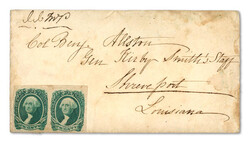 Col Benj. Allston
Gen Kirby Smith's Staff
Shreveport
Louisiana